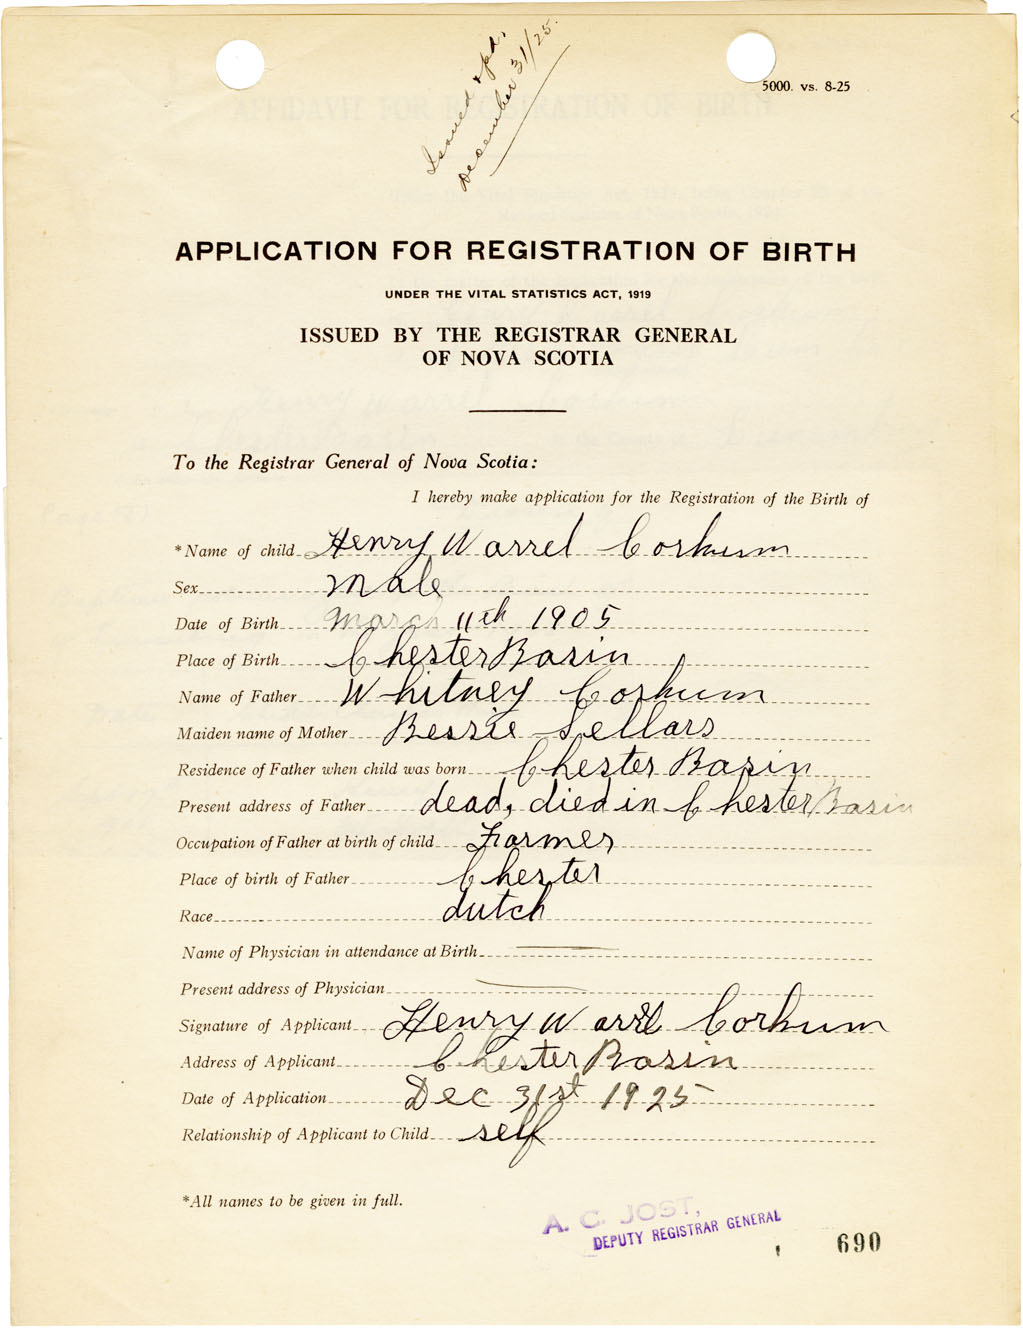 Issued & pd.
December 31/25.
5000. vs. 8-25
APPLICATION FOR REGISTRATION OF BIRTH
UNDER THE VITAL STATISTICS ACT, 1919
ISSUED BY THE REGISTRAR GENERAL
OF NOVA SCOTIA
To the Registrar General of Nova Scotia:
I hereby make application for the Registration of the Birth of
*Name of child Henry Warrel Corkum
Sex Male
Date of Birth March 11th 1905
Place of Birth Chester Basin
Name of Father Whitney Corkum
Maiden name of Mother Bessie Sellars
Residence of Father when child was born Chester Basin
Present address of Father dead, died in Chester Basin
Occupation of Father at birth of child Farmer
Place of birth of Father Chester
Race dutch
Name of Physician in attendance at Birth
Present address of Physician
Signature of Applicant Henry Warrel Corkum
Address of Applicant Chester Basin
Date of Application Dec 31st 1925
Relationship of Applicant to Child self
*All names to be given in full.
A. C. JOST,
DEPUTY REGISTRAR GENERAL
690